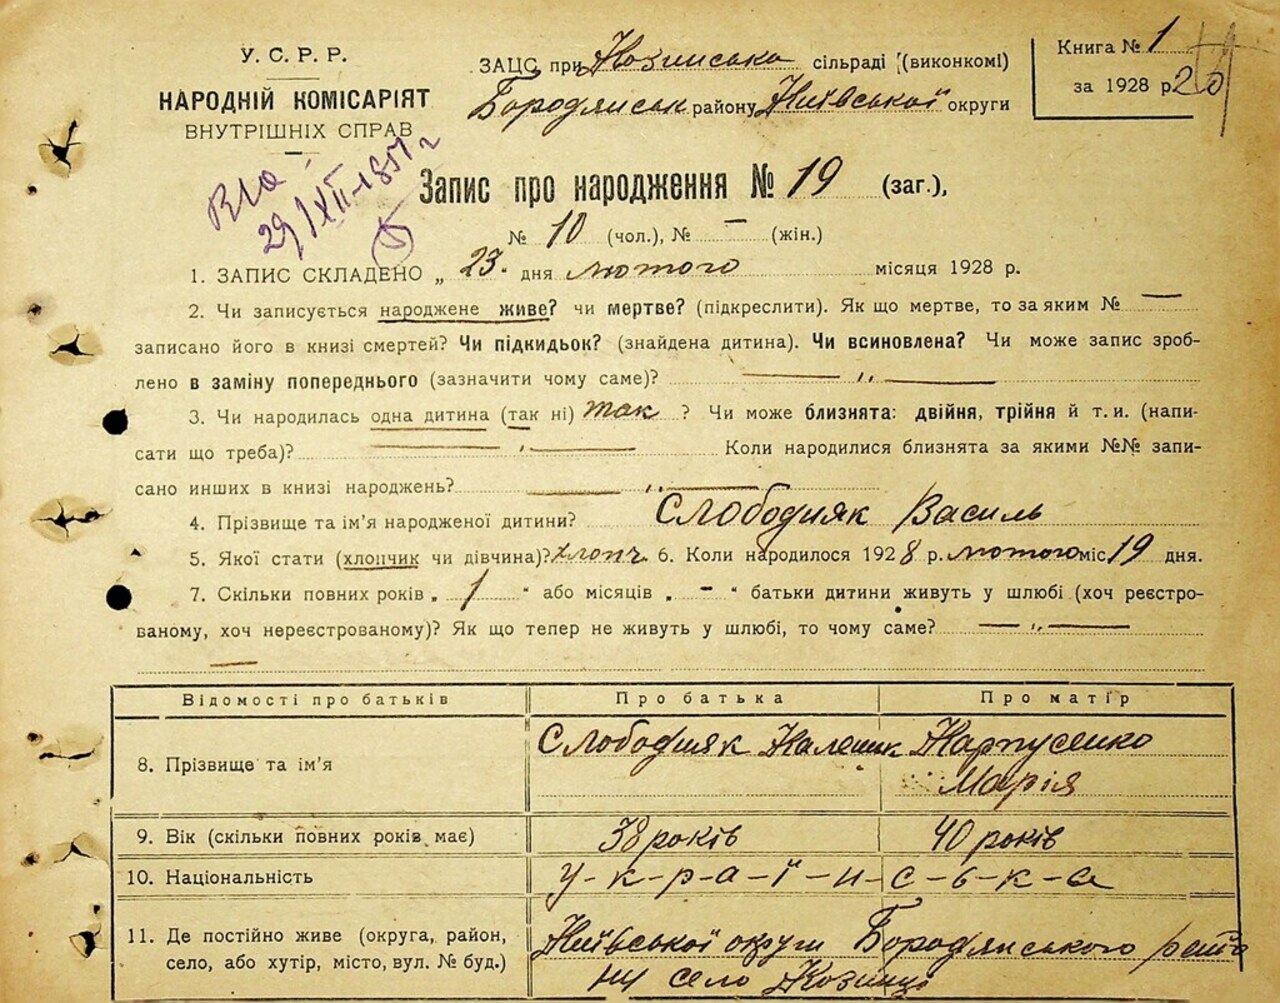 У. С. Р. Р.
НАРОДНІЙ КОМІСАРІЯТ
ВНУТРІШНІХ СПРАВ
ЗАЦС при Козинській сільраді (виконкомі)
Бородянськ району Київської округи
Книга № 1
за 1928 р.
Запис про народження № 19 (заг.),
№ 10 (чол.), № – (жін.)
1. ЗАПИС СКЛАДЕНО „ 23 " дня лютого місяця 1928 р.
2. Чи записується народжене живе? чи мертве? (підкреслити). Як що мертве, то за яким № —
записано його в книзі смертей? Чи підкидьок? (знайдена дитина). Чи всиновлена? Чи може запис зроб-
лено в заміну попереднього (зазначити чому саме)? — „ —
3. Чи народилась одна дитина (так ні) так ? Чи може близнята: двійня, трійня й т. и. (напи-
сати що треба)? — „ — Коли народилися близнята за якими №№ запи-
сано инших в книзі народжень? — „ —
4. Прізвище та ім'я народженої дитини? Слободняк Василь
5. Якої стати (хлопчик чи дівчина)? хлопч. 6. Коли народилося 1928 р. лютого міс 19 дня.
7. Скільки повних років „ 1 " або місяців „ – " батьки дитини живуть у шлюбі (хоч реєстро-
ваному, хоч нереєстрованому)? Як що тепер не живуть у шлюбі, то чому саме? — „ —
—
Відомості про батьків Про батька Про матір
8. Прізвище та ім'я Слободняк Калєник Карпусенко
Марія
9. Вік (скільки повних років має) 38 років 40 років
10. Національність У-к-р-а-ї-н-с-ь-к-а
11. Де постійно живе (округа, район, Київської округи Бородянського рай
село, або хутір, місто, вул. № буд.) ну село Козинці